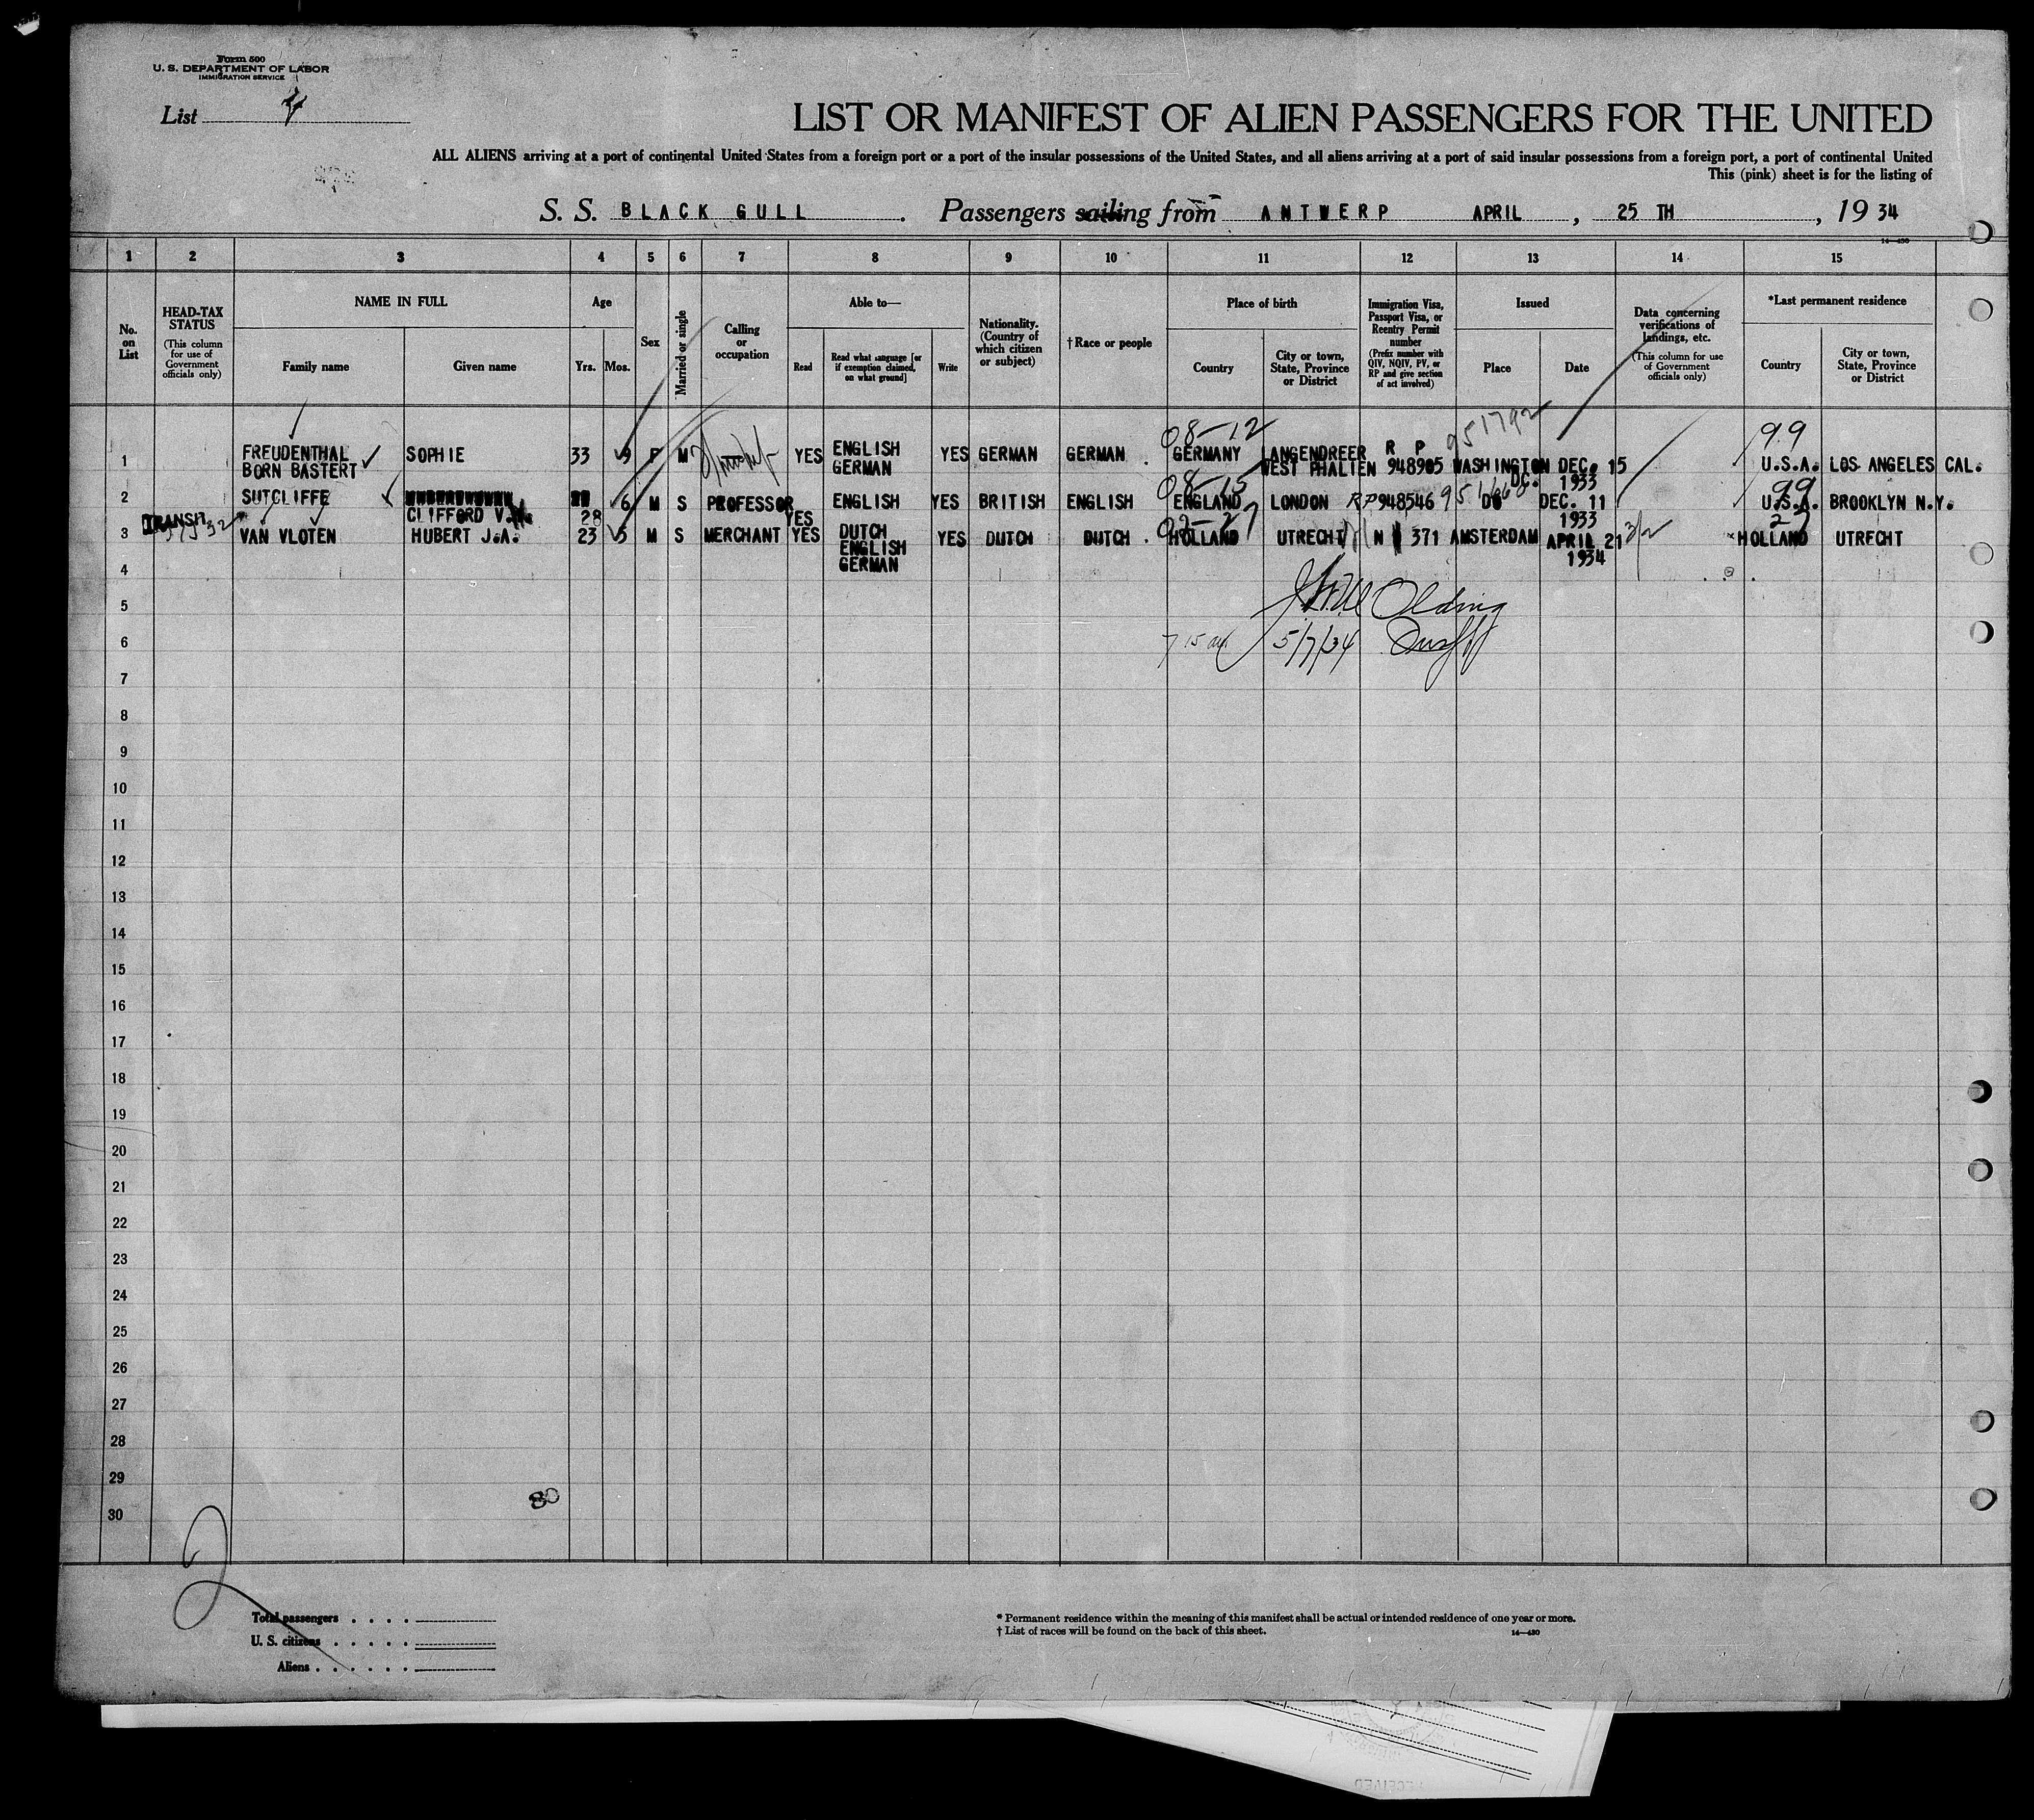 Form 500
U. S. DEPARTMENT OF LABOR
IMMIGRATION SERVICE
List
LIST OR MANIFEST OF ALIEN PASSENGERS FOR THE UNITED
ALL ALIENS arriving at a port of continental United States from a foreign port or a port of the insular possessions of the United States, and all aliens arriving at a port of said insular possessions from a foreign port, a port of continental United
This (pink) sheet is for the listing of
S. S. BLACK GULL . Passengers sailing from ANTWERP APRIL , 25 TH , 19 34
14—430
1 2 3 4 5 6 7 8 9 10 11 12 13 14 15
No. on List
HEAD-TAX STATUS
(This column for use of Government officials only)
NAME IN FULL
Family name
Given name
Age
Yrs.
Mos.
Sex
Married or single
Calling or occupation
Able to—
Read
Read what language [or if exemption claimed, on what ground]
Write
Nationality. (Country of which citizen or subject)
† Race or people
Place of birth
Country
City or town, State, Province or District
Immigration Visa, Passport Visa, or Reentry Permit number
(Prefix number with QIV, NQIV, PV, or RP and give section of act involved)
Issued
Place
Date
Data concerning verifications of landings, etc.
(This column for use of Government officials only)
*Last permanent residence
Country
City or town, State, Province or District
08-12 951792 99
1 FREUDENTHAL SOPHIE 33 9 F M YES ENGLISH YES GERMAN GERMAN GERMANY LANGENDREER R P 948905 WASHINGTON DEC. 15 U.S.A. LOS ANGELES CAL.
BORN BASTERT GERMAN WEST PHALIEN DC. 1933
08-15 99
2 SUTCLIFFE 6 M S PROFESSOR ENGLISH YES BRITISH ENGLISH ENGLAND LONDON RP948546 DO DEC. 11 U.S.A. BROOKLYN N.Y.
CLIFFORD V. 28 YES 1933
TRANSIT 27
3 VAN VLOTEN HUBERT J.A. 23 5 M S MERCHANT YES DUTCH YES DUTCH DUTCH HOLLAND UTRECHT N 371 AMSTERDAM APRIL 21 HOLLAND UTRECHT
ENGLISH 1934
GERMAN
4
Olding
5
7 15 am 5/7/34
6
7
8
9
10
11
12
13
14
15
16
17
18
19
20
21
22
23
24
25
26
27
28
29
80
30
2
Total passengers . . . .
U. S. citizens . . . . .
Aliens . . . . . .
* Permanent residence within the meaning of this manifest shall be actual or intended residence of one year or more.
† List of races will be found on the back of this sheet.
14—430